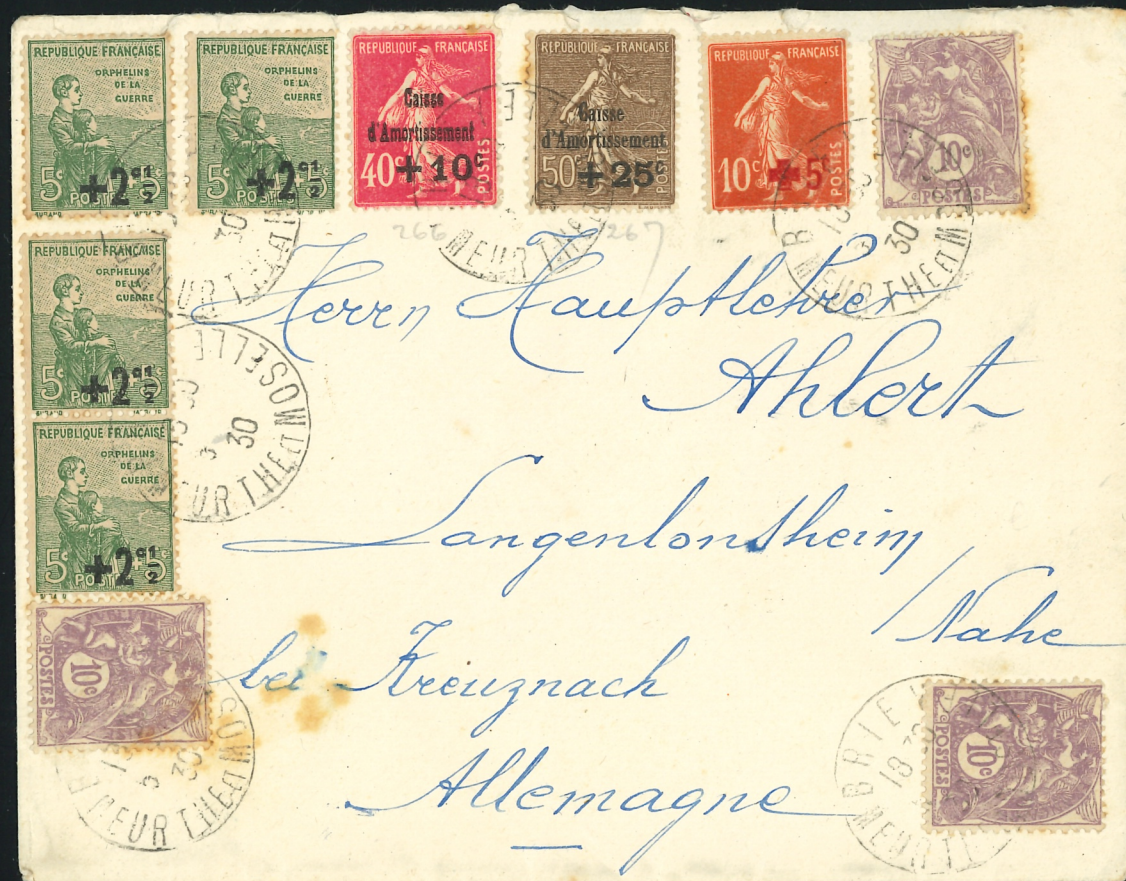 REPUBLIQUE FRANÇAISE
ORPHELINS
DE LA
GUERRE
5c POSTES 5c
+2c 1/2
REPUBLIQUE FRANÇAISE
ORPHELINS
DE LA
GUERRE
5c POSTES 5c
+2c 1/2
REPUBLIQUE FRANÇAISE
Caisse
d'Amortissement
40c +10c
POSTES
REPUBLIQUE FRANÇAISE
Caisse
d'Amortissement
50c +25c
POSTES
REPUBLIQUE FRANÇAISE
10c +5c
POSTES
10c
POSTES
266
267
30
MEURTHE & M
MEURTHE
BR
18 30
3 30
MEURTHE & MO
REPUBLIQUE FRANÇAISE
ORPHELINS
DE LA
GUERRE
5c POSTES 5c
+2c 1/2
REPUBLIQUE FRANÇAISE
ORPHELINS
DE LA
GUERRE
5c POSTES 5c
+2c 1/2
3 30
MEURTHE & MOSELLE
Herrn Hauptlehrer
Ahlert
Langenlonsheim
/Nahe
bei Kreuznach
Allemagne
10c
POSTES
3 30
MEURTHE & MOS
10c
POSTES
BRIEY
18 30
MEU